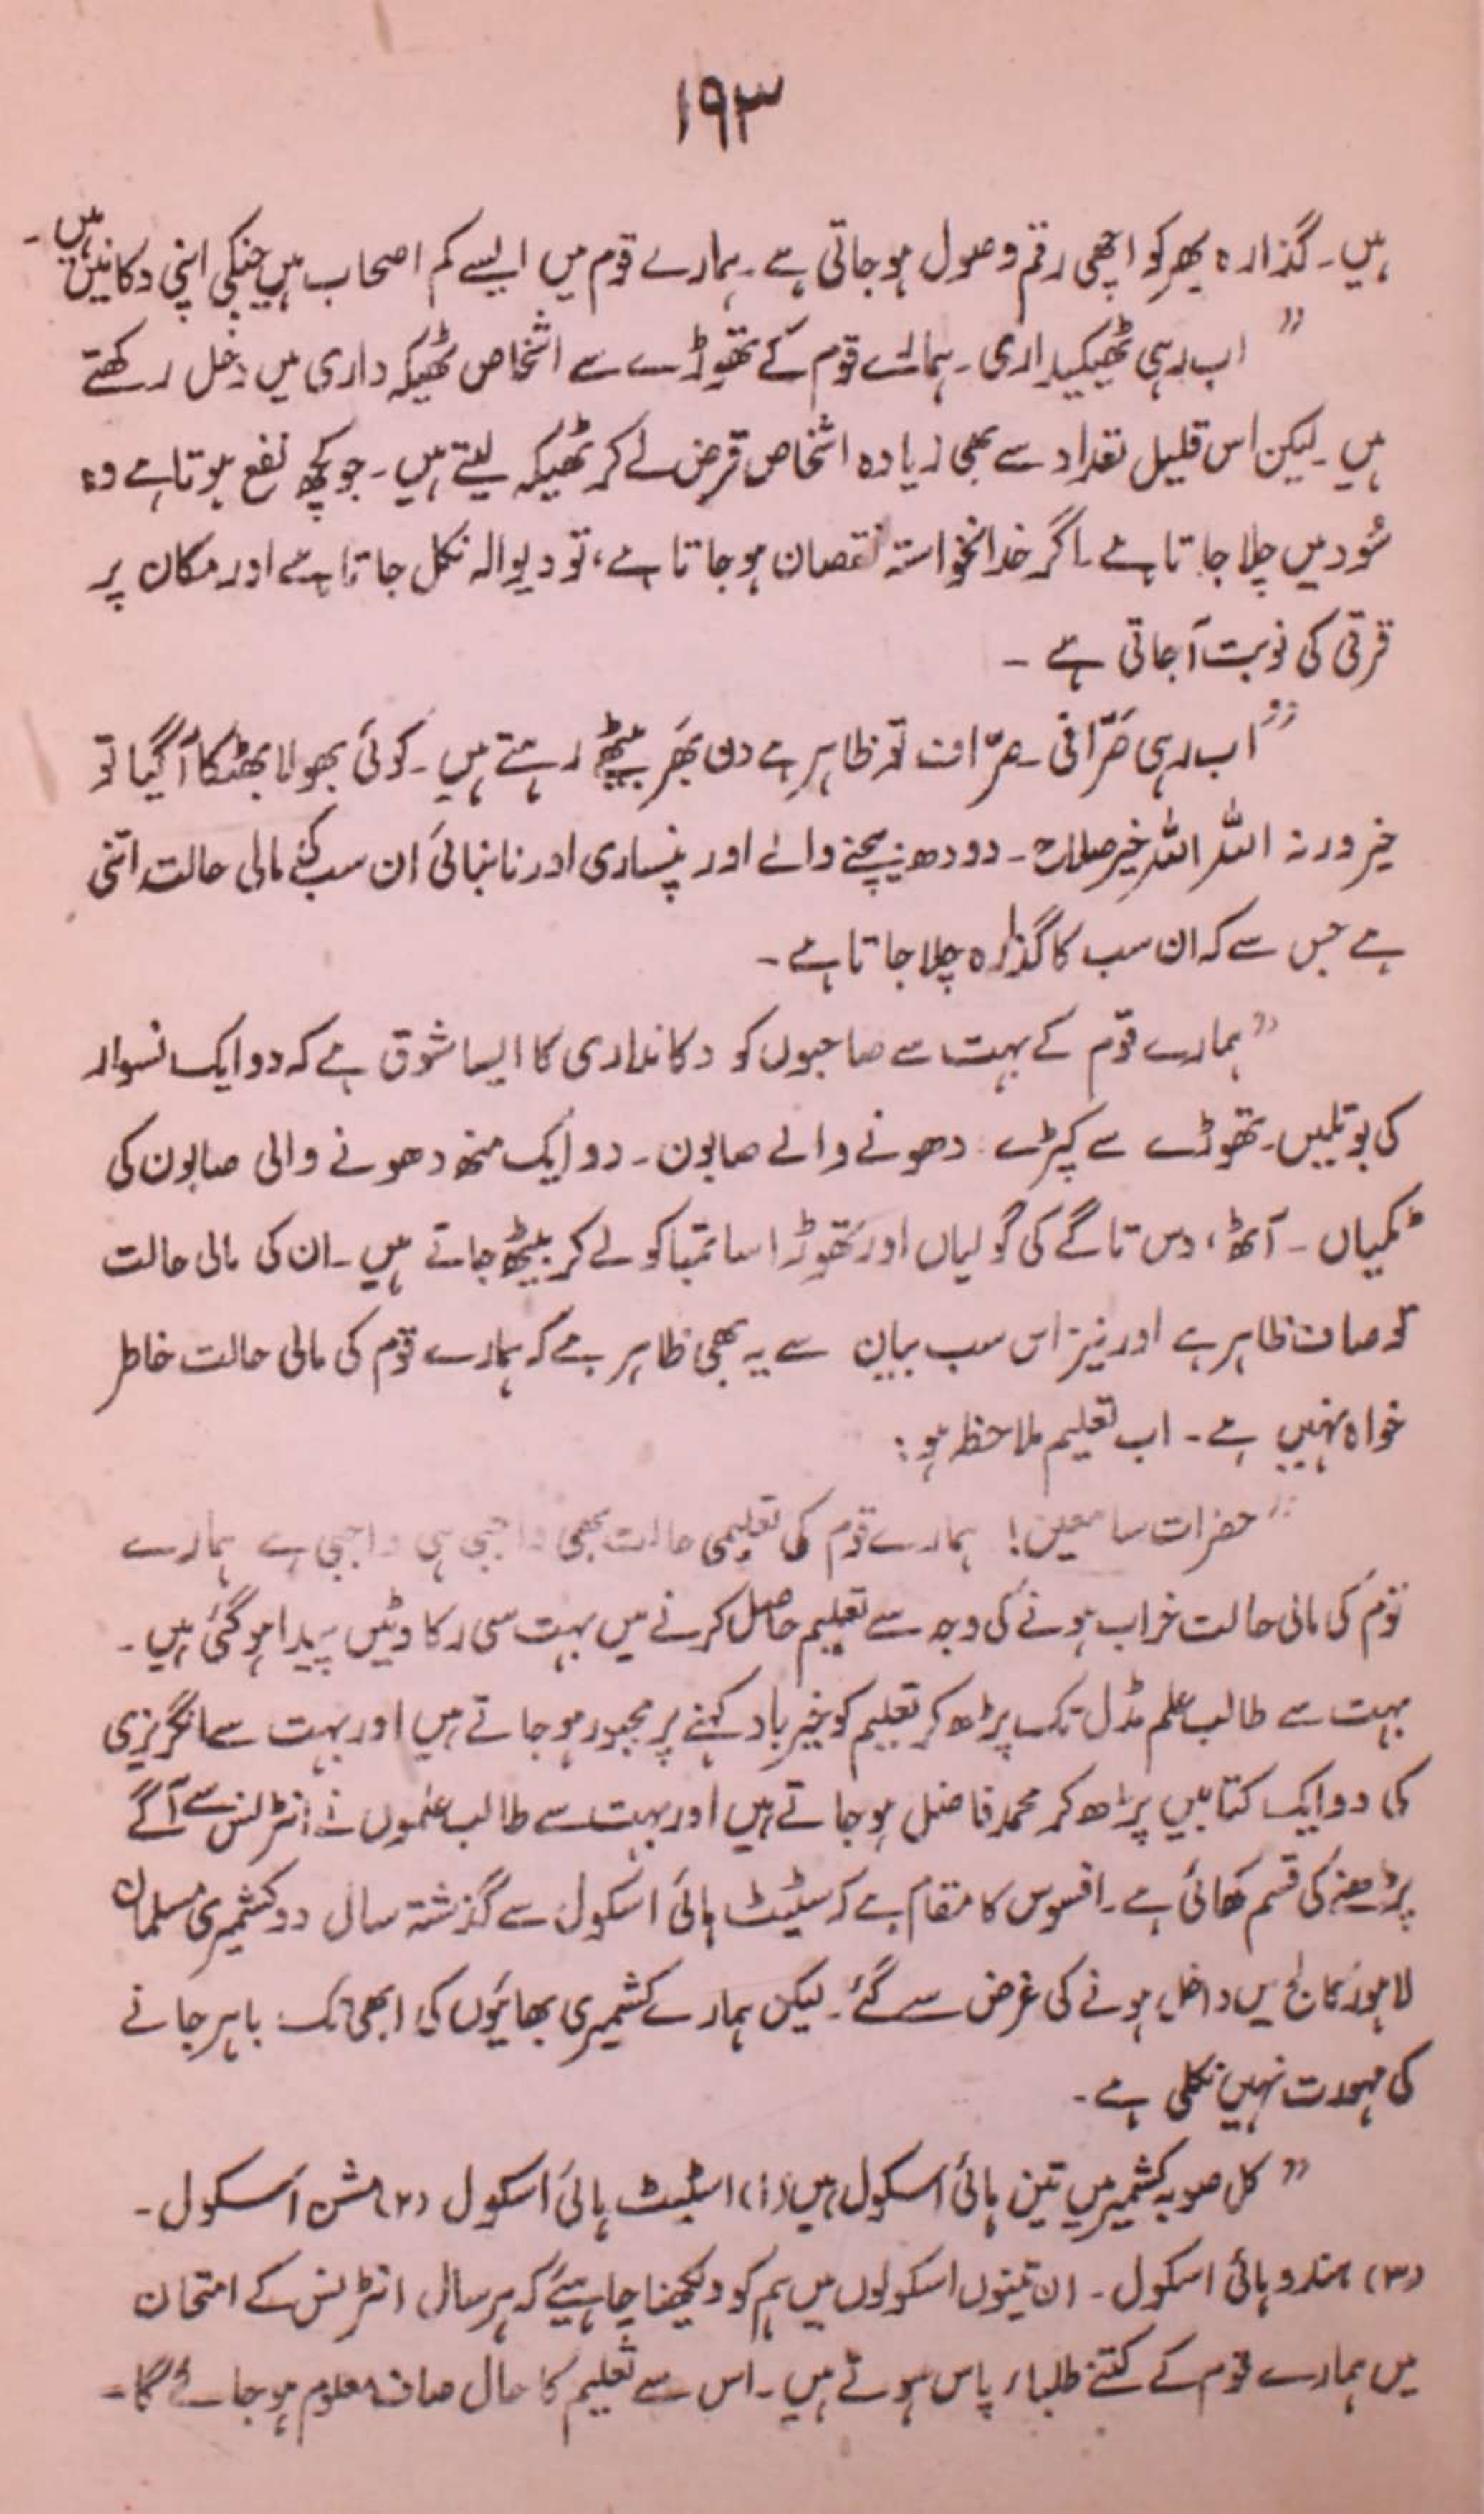 ۱۹۳
ہیں۔ گذارہ بھر کو اچھی رقم وصول ہو جاتی ہے۔ ہمارے قوم میں ایسے کم اصحاب ہیں جنکی اپنی دکانیں ہیں۔
” اب رہی ٹھیکیداری۔ ہمارے قوم کے تھوڑے سے اشخاص ٹھیکہ داری میں دخل رکھتے
ہیں۔ لیکن اس قلیل تعداد سے بھی زیادہ اشخاص قرض لے کر ٹھیکہ لیتے ہیں۔ جو کچھ نفع ہوتا ہے وہ
سُود میں چلا جاتا ہے۔ اگر خدانخواستہ نقصان ہو جاتا ہے، تو دیوالہ نکل جاتا ہے اور مکان پر
قرقی کی نوبت آجاتی ہے۔
” اب رہی صرّافی۔ صرّاف تو ظاہر ہے دن بھر بیٹھے رہتے ہیں۔ کوئی بھولا بھٹکا آگیا تو
خیر ورنہ اللہ اللہ خیر صلاح۔ دودھ بیچنے والے اور پنساری اور نانبائی ان سب کی مالی حالت اتنی
ہے جس سے کہ ان سب کا گذارہ چلا جاتا ہے۔
” ہمارے قوم کے بہت سے صاحبوں کو دکانداری کا ایسا شوق ہے کہ دو ایک نسوار
کی بوتلیں۔ تھوڑے سے کپڑے دھونے والے صابون۔ دو ایک منھ دھونے والی صابون کی
ٹکیاں۔ آٹھ، دس تاگے کی گولیاں اور تھوڑا سا تمباکو لے کر بیٹھ جاتے ہیں۔ ان کی مالی حالت
تو صاف ظاہر ہے اور نیز اس سب بیان سے یہ بھی ظاہر ہے کہ ہمارے قوم کی مالی حالت خاطر
خواہ نہیں ہے۔ اب تعلیم ملاحظہ ہو:
” حضرات سامعین! ہمارے قوم کی تعلیمی حالت بھی واجبی ہی واجبی ہے ہمارے
قوم کی مالی حالت خراب ہونے کی وجہ سے تعلیم حاصل کرنے میں بہت سی رکاوٹیں پیدا ہو گئی ہیں۔
بہت سے طالب علم مڈل تک پڑھ کر تعلیم کو خیر باد کہنے پر مجبور ہو جاتے ہیں اور بہت سے انگریزی
کی دو ایک کتابیں پڑھ کر محمد فاضل ہو جاتے ہیں اور بہت سے طالب علموں نے انٹرنس سے آگے
پڑھنے کی قسم کھائی ہے۔ افسوس کا مقام ہے کہ سٹیٹ ہائی اسکول سے گذشتہ سال دو کشمیری مسلمان
لاہور کالج میں داخل ہونے کی غرض سے گئے۔ لیکن ہمارے کشمیری بھائیوں کی ابھی تک باہر جانے
کی مہورت نہیں نکلی ہے۔
” کل صوبہ کشمیر میں تین ہائی اسکول ہیں (۱) اسٹیٹ ہائی اسکول (۲) مشن اسکول۔
(۳) ہندو ہائی اسکول۔ ان تینوں اسکولوں میں ہم کو دیکھنا چاہیئے کہ ہر سال انٹرنس کے امتحان
میں ہمارے قوم کے کتنے طلباء پاس ہوتے ہیں۔ اس سے تعلیم کا حال صاف معلوم ہو جائے گا۔